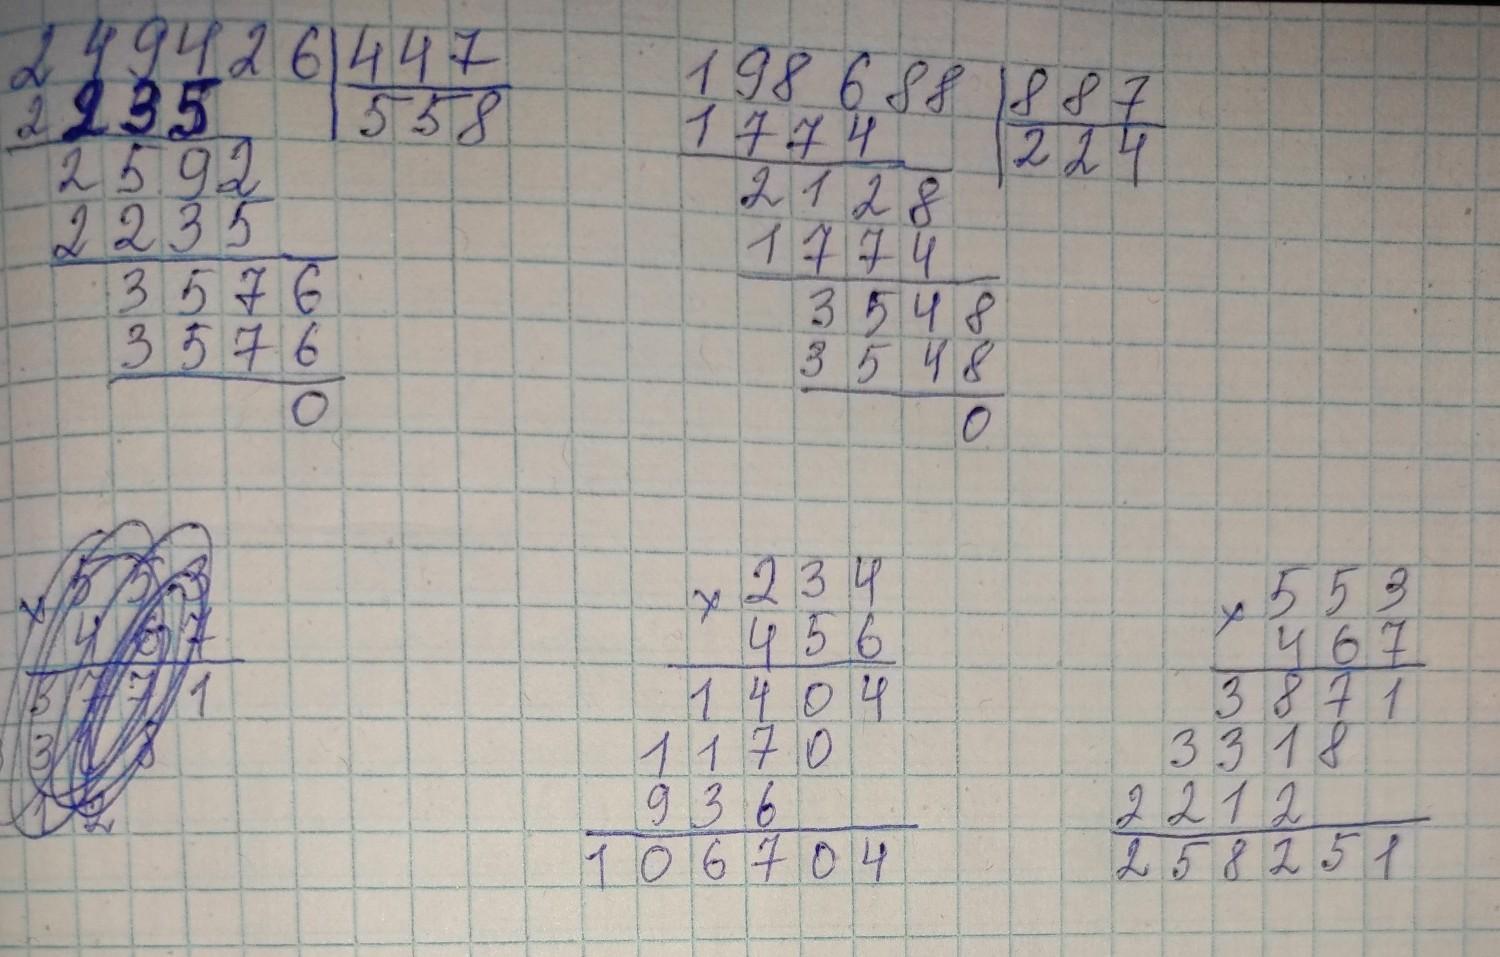 249426 447
2235 558
2592
2235
3576
3576
0
198688 887
1774 224
2128
1774
3548
3548
0
× 234
456
1404
1170
936
106704
× 553
467
3871
3318
2212
258251